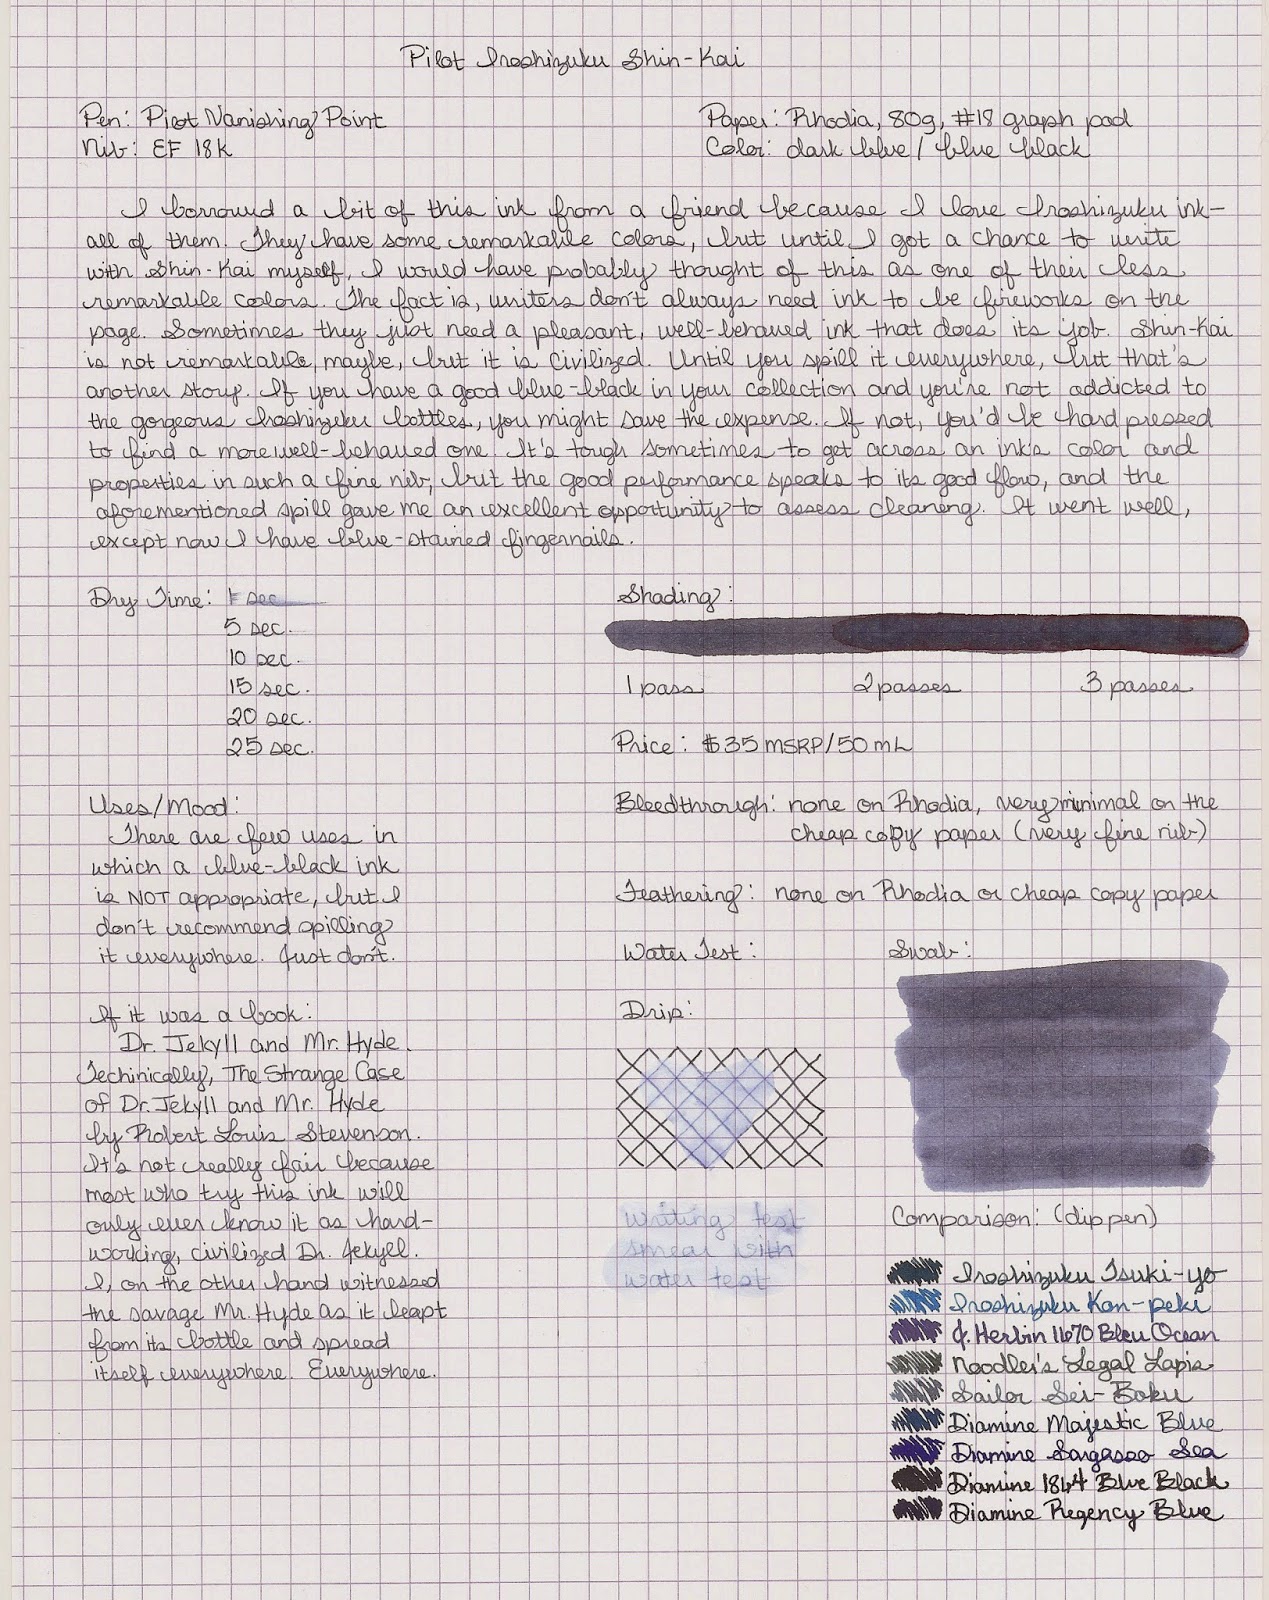 Pilot Iroshizuku Shin-Kai
Pen: Pilot Vanishing Point
Nib: EF 18k
Paper: Rhodia, 80g, #18 graph pad
Color: dark blue / blue black
I borrowed a bit of this ink from a friend because I love Iroshizuku ink-
all of them. They have some remarkable colors, but until I got a chance to write
with Shin-Kai myself, I would have probably thought of this as one of their less
remarkable colors. The fact is, writers don't always need ink to be fireworks on the
page. Sometimes they just need a pleasant, well-behaved ink that does its job. Shin-Kai
is not remarkable, maybe, but it is civilized. Until you spill it everywhere, but that's
another story. If you have a good blue-black in your collection and you're not addicted to
the gorgeous Iroshizuku bottles, you might save the expense. If not, you'd be hard pressed
to find a more well-behaved one. It's tough sometimes to get across an ink's color and
properties in such a fine nib, but the good performance speaks to its good flow, and the
aforementioned spill gave me an excellent opportunity to assess cleaning. It went well,
except now I have blue-stained fingernails.
Dry Time: 1 sec
5 sec.
10 sec.
15 sec.
20 sec.
25 sec.
Shading:
1 pass 2 passes 3 passes
Price: $35 MSRP/50 mL
Uses/Mood:
There are few uses in
which a blue-black ink
is NOT appropriate, but I
don't recommend spilling
it everywhere. Just don't.
Bleedthrough: none on Rhodia, very minimal on the
cheap copy paper (very fine nib)
Feathering: none on Rhodia or cheap copy paper
If it was a book:
Dr. Jekyll and Mr. Hyde.
Techinically, The Strange Case
of Dr. Jekyll and Mr. Hyde
by Robert Louis Stevenson.
It's not really fair because
most who try this ink will
only ever know it as hard-
working, civilized Dr. Jekyll.
I, on the other hand witnessed
the savage Mr. Hyde as it leapt
from its bottle and spread
itself everywhere. Everywhere.
Water Test:
Drip:
writing test
smear with
water test
Swab:
Comparison: (dip pen)
Iroshizuku Tsuki-yo
Iroshizuku Kon-peki
J. Herbin 1670 Bleu Ocean
Noodler's Legal Lapis
Sailor Sei-Boku
Diamine Majestic Blue
Diamine Sargasso Sea
Diamine 1864 Blue Black
Diamine Regency Blue